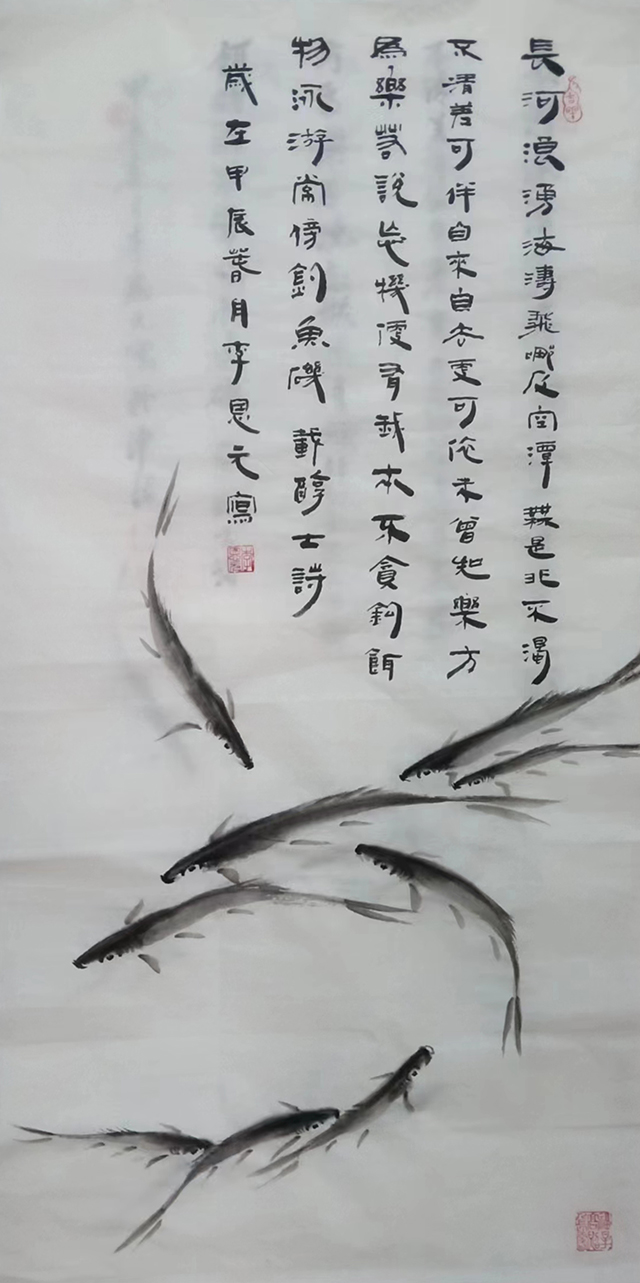 長河浪湧海濤飛哪及空潭無是非不濁
不清差可伴自來自去更可依未曾知樂方
為樂若說忘機便有本不貪鈎餌
物泳游常傍釣魚磯 戴醇士詩
歲在甲辰春月李思元寫